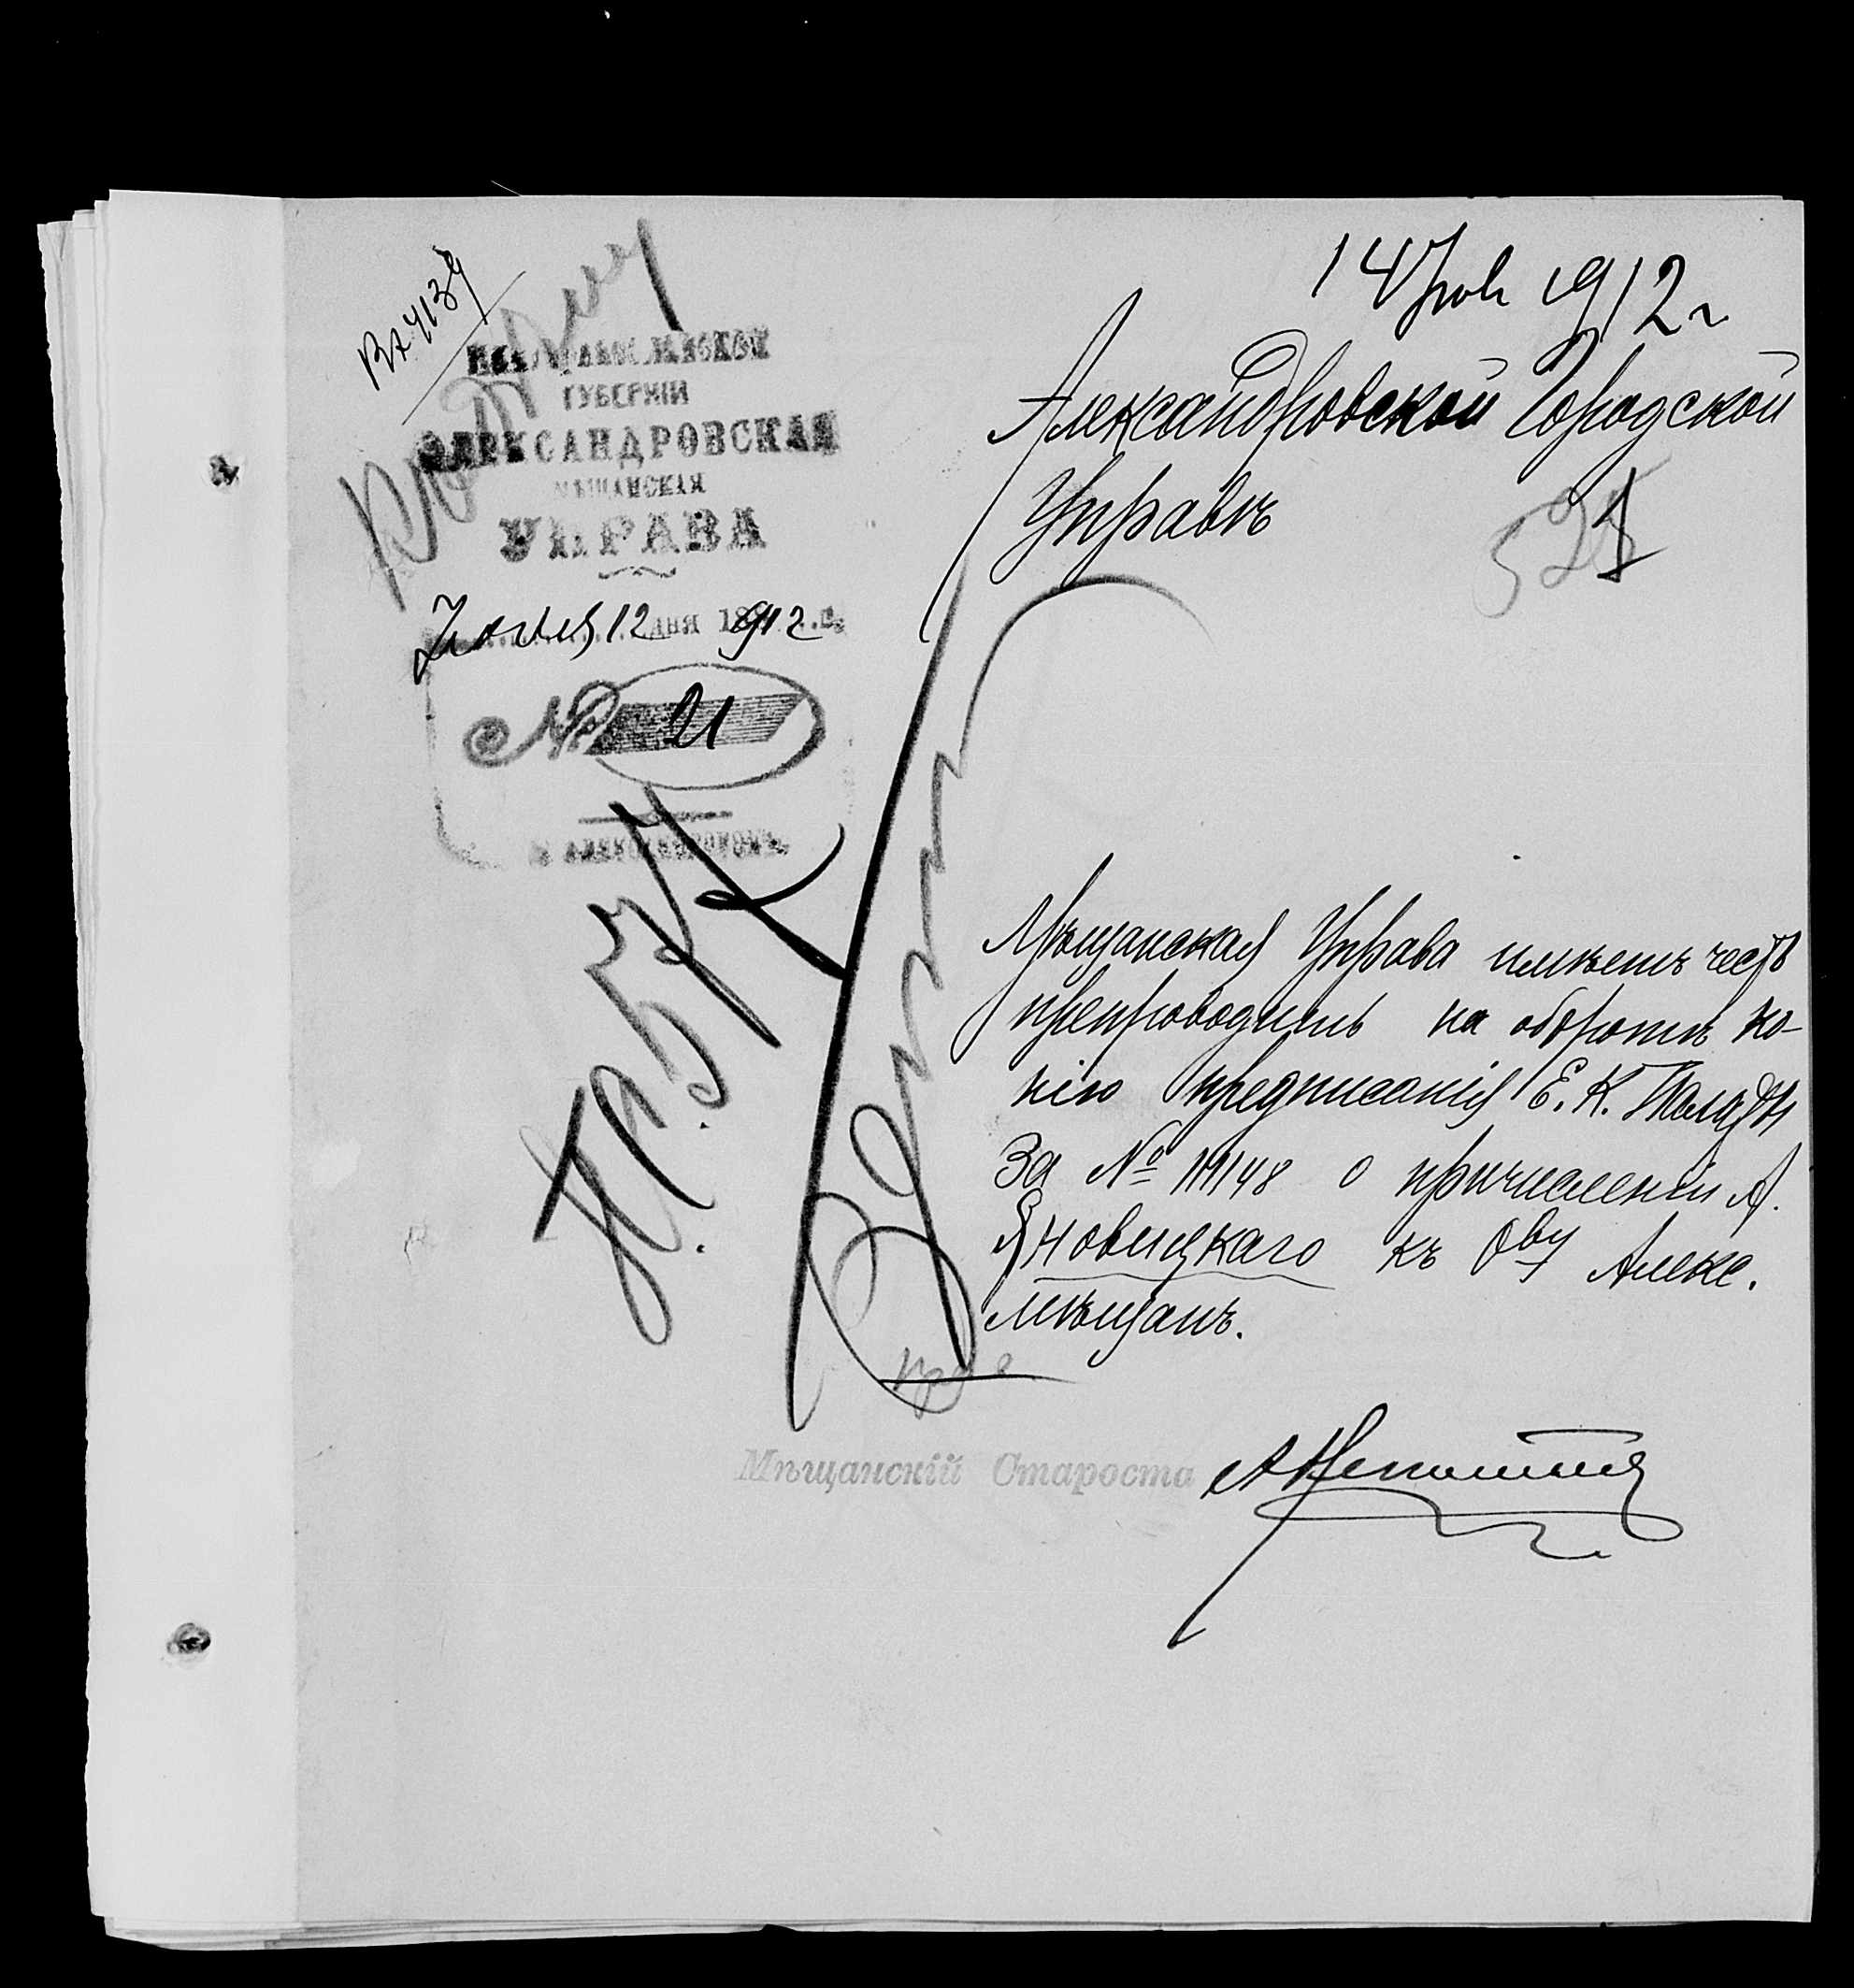 14 Іюня 1912 г
Вх 4139
ЕКАТЕРИНОСЛАВСКОЙ
ГУБЕРНІИ
АЛЕКСАНДРОВСКАЯ
МѢЩАНСКАЯ
УПРАВА
Іюня 12 дня 1912 г.
№ 21
Г. АЛЕКСАНДРОВСКЪ
Александровской Городской
Управѣ
Мѣщанская Управа имѣетъ честь
препроводить на оборотѣ ко-
пію предписанія Е. К. Палаты
за № 111148 о причисленіи А.
Яновицкаго къ Ову Алекс.
мѣщанъ.
Мѣщанскій Староста